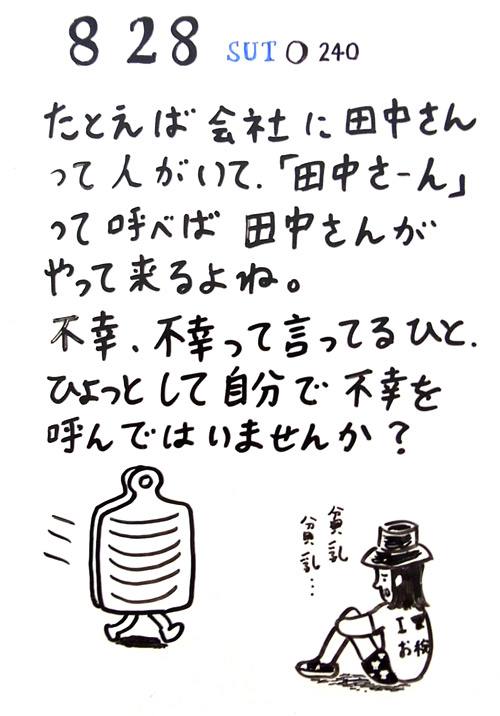 8 28 SUT ○ 240
たとえば 会社に 田中さん
って人がいて.「田中さーん」
って呼べば 田中さんが
やって来るよね。
不幸、不幸って言ってるひと.
ひょっとして自分で不幸を
呼んではいませんか？
貧乳
貧乳…
I
お